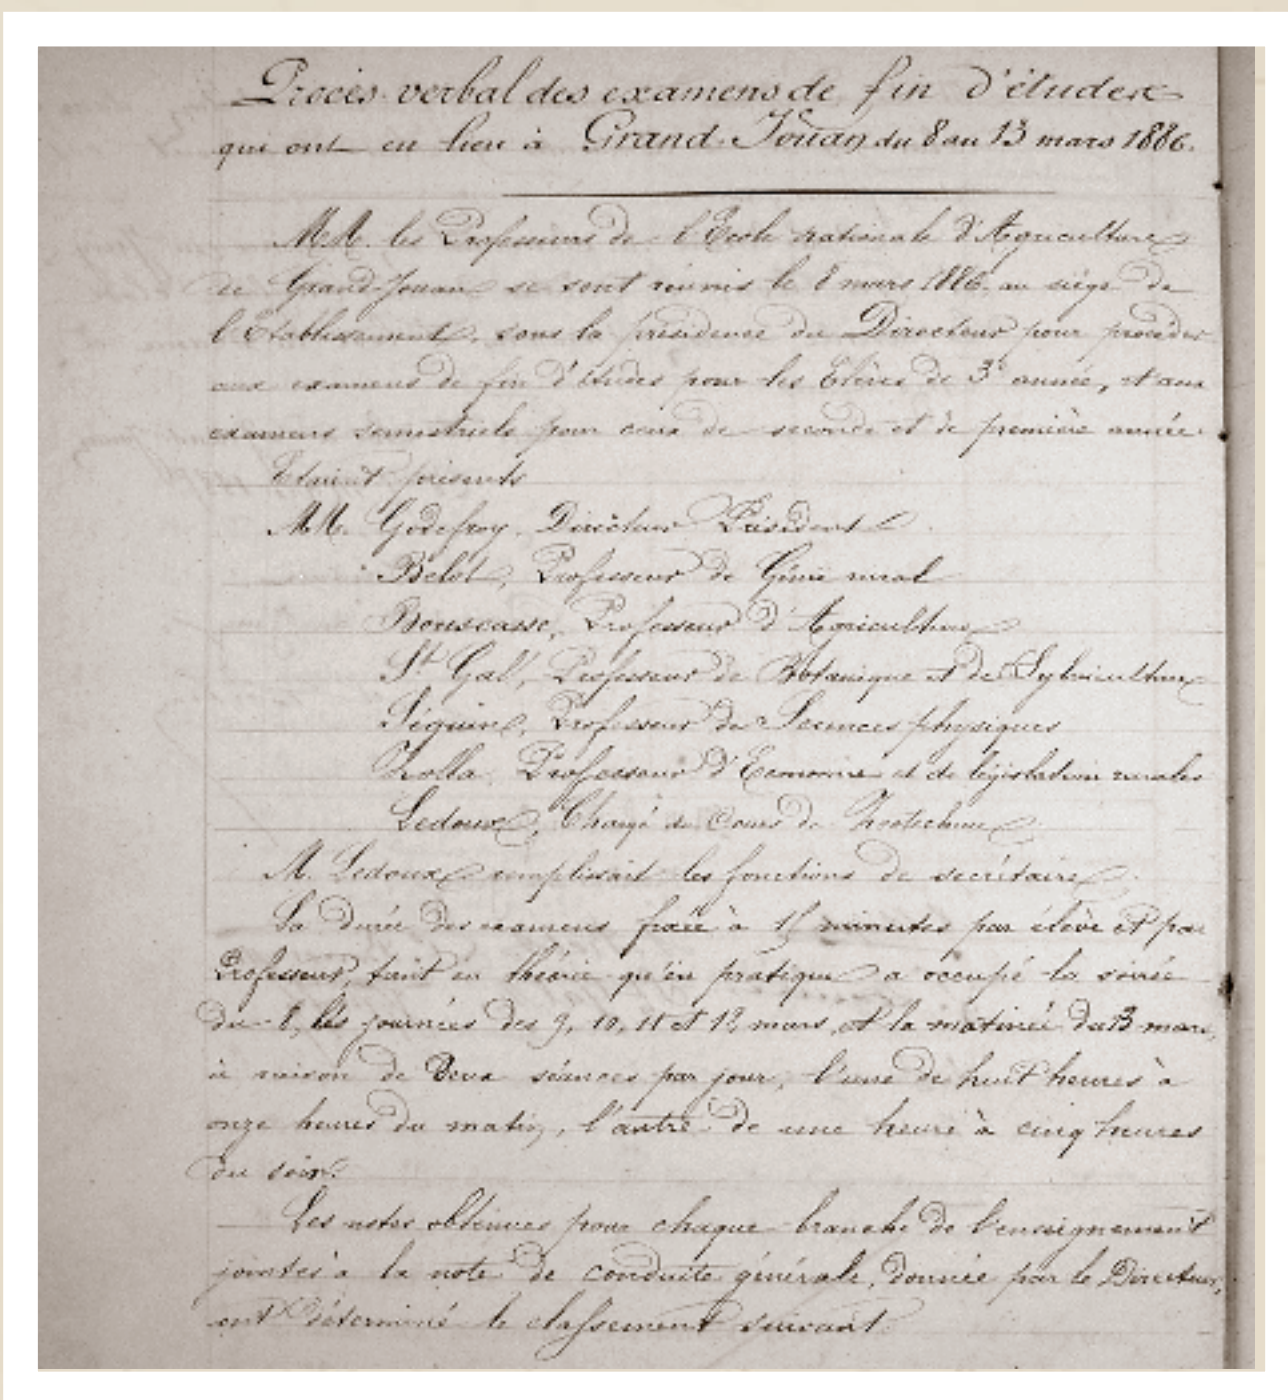 Procès-verbal des examens de fin d'études
qui ont eu lieu à Grand-Jouan du 8 au 13 mars 1886.
MM. les Professeurs de l'Ecole nationale d'Agriculture
de Grand-Jouan se sont réunis le 8 mars 1886 au siège de
l'Etablissement, sous la présidence du Directeur pour procéder
aux examens de fin d'études pour les Elèves de 3e année, et aux
examens semestriels pour ceux de seconde et de première année.
Etaient présents
MM. Godefroy, Directeur Président
Belot, Professeur de Génie rural
Bouscasse, Professeur d'Agriculture
St Gal, Professeur de Botanique et de Sylviculture
Séguin, Professeur de Sciences physiques
Zolla, Professeur d'Economie et de législation rurales
Ledoux, Chargé du Cours de Zootechnie
M. Ledoux remplissait les fonctions de secrétaire.
La durée des examens fixée à 15 minutes par élève et par
Professeur, tant en théorie qu'en pratique a occupé la soirée
du 8, les journées des 9, 10, 11 et 12 mars, et la matinée du 13 mars,
à raison de Deux séances par jour, l'une de huit heures à
onze heures du matin, l'autre de une heure à cinq heures
du soir.
Les notes obtenues pour chaque branche de l'enseignement
jointes à la note de conduite générale, donnée par le Directeur,
ont déterminé le classement suivant.